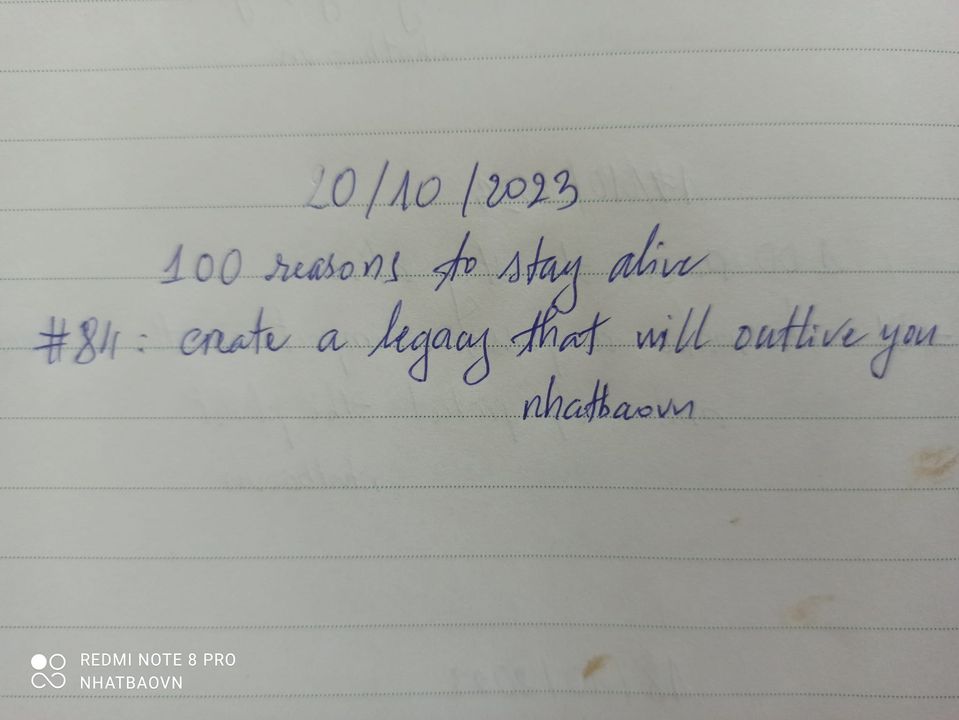 20/10/2023
100 reasons to stay alive
#84: create a legacy that will outlive you
nhatbaovn
REDMI NOTE 8 PRO
NHATBAOVN